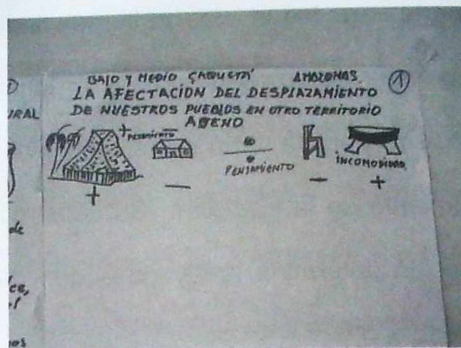 BAJO Y MEDIO CAQUETÁ AMAZONAS 1
LA AFECTACIÓN DEL DESPLAZAMIENTO
DE NUESTROS PUEBLOS EN OTRO TERRITORIO
AGENO
+ PENSAMIENTO −
PENSAMIENTO
INCOMODIDAD
+ − − +
URAL
de